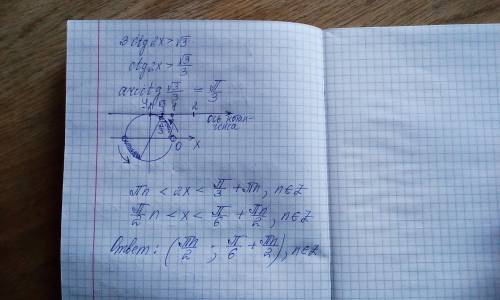 3 ctg 2x > √3
ctg 2x > √3/3
arcctg √3/3 = π/3
ось котан-
генса
x
0
πn < 2x < π/3 + πn, n∈Z
π/2 n < x < π/6 + πn/2, n∈Z
Ответ: (πn/2 ; π/6 + πn/2), n∈Z